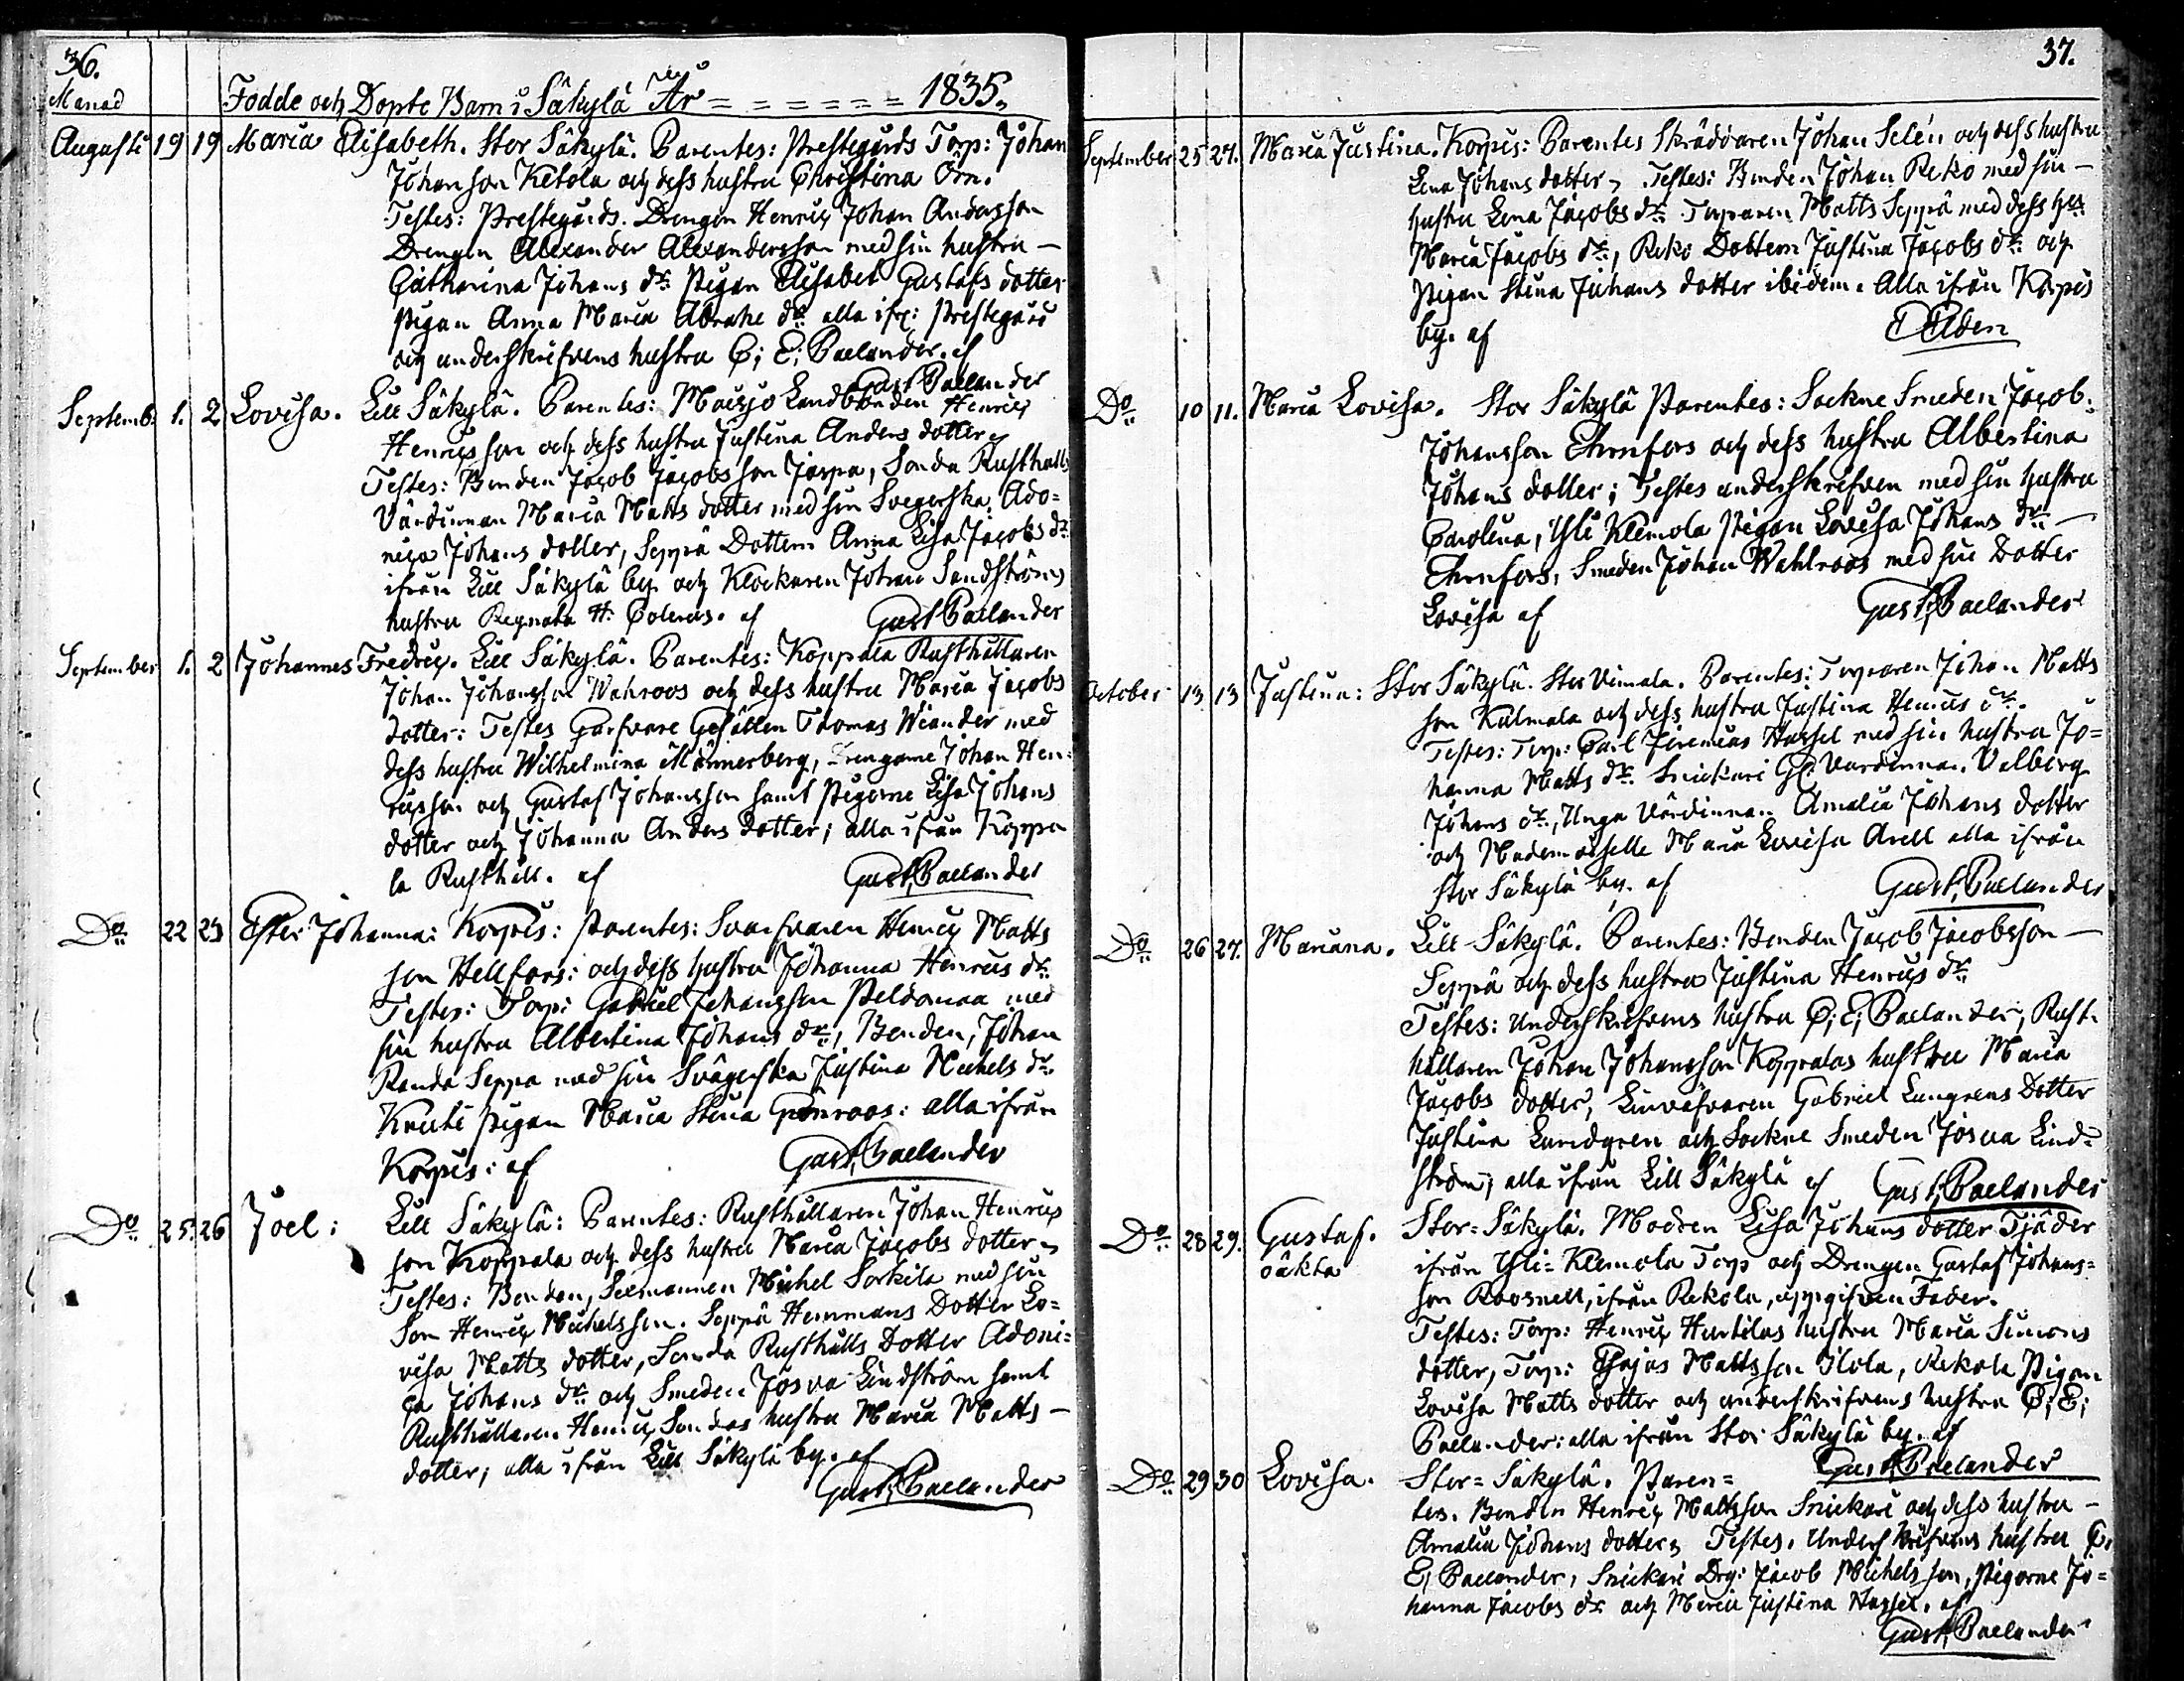 36.
Manad Födde och Döpte Barn i Säkylä År = = = = = = 1835.
Augusti 19 19 Maria Elisabeth. Stor Säkylä. Parentes: Prestegårds Torp: Johan
Johansson Ketola och dess hustru Christina Örn.
Testes: Prestegårds Drengen Henric Johan Andersson
Drengen Alexander Alexandersson med sin hustru –
Catharina Johans dr: Pigan Elisabet Gustafs dotter
Pigan Anna Maria Abrahs dr alla ifr: Prestegård
och underskrifvens hustru C; E; Paelander. af
Gust Paelander
Septemb. 1. 2 Lovisa. Lill Säkylä. Parentes: Maisjo Landbonden Henric
Henricsson och dess hustru Justina Anders dotter,
Testes: Bonden Jacob Jacobsson Jaspa, Sonda Rusthålls
Värdinnan Maria Matts dotter med sin Svegerska, Ado=
nica Johans dotter, Seppä Dottern Anna Lisa Jacobs dr
ifrån Lill Säkylä by och Klockaren Johan Sandströms
hustru Regnata H. Polenus. af Gust Paelander
September 1. 2 Johannes Fredric. Lill Säkylä. Parentes: Koppala Rusthållaren
Johan Johansson Wahroos och dess hustru Maria Jacobs
dotter: Testes Garfvare Gesällen Thomas Wiander med
dess hustru Wilhelmina Männerberg, Drengarne Johan Hen=
ricsson och Gustaf Johansson samt Pigorne Lisa Johans
dotter och Johanna Anders dotter; alla ifrån Koppa
la Rusthåll. af Gust, Paelander
Do 22 23 Ester Johanna: Korpis: Parentes: Svarfvaren Henric Matts
son Hellfors: och dess hustru Johanna Henrics dr:
Testes: Torp: Gabriel Johansson Peldomaa med
sin hustru Albertina Johans dr:, Bonden, Johan
Randa Seppa med sin Svägerska Justina Michels dr.
Kruti Pigan Maria Stina Grönroos: alla ifrån
Korpis: af Gust, Paelander
Do 25. 26 Joel: Lill Säkylä: Parentes: Rusthållaren Johan Henrics
son Koppala och dess hustru Maria Jacobs dotter,
Testes: Bonden, Seemannen Michel Sorkila med sin
Son Henric Michelsson. Seppä Hemmans Dotter Lo=
visa Matts dotter, Sonda Rusthålls Dotter Adoni=
ca Johans dr: och Smeden Josva Lindström samt
Rusthållaren Henric Sondas hustru Maria Matts –
dotter; alla ifrån Lill Säkylä by. af
Gust, Paelander
37.
September 25 27. Maria Justina. Korpis: Parentes Skräddaren Johan Selén och dess hustru
Lena Johans dotter, Testes: Bonden Johan Reko med sin –
hustru Lena Jacobs dr: Torparen Matts Seppä med dess hu:
Maria Jacobs dr:, Reko Dottern Justina Jacobs dr: och
Pigan Stina Johans dotter ibidem. Alla ifrån Korpis
by. af Elden
Do 10 11. Maria Lovisa. Stor Säkylä Parentes: Sockne Smeden Jacob
Johansson Ehrnfors och dess hustru Albertina
Johans dotter; Testes underskrefven med sin hustru
Carolina, Yli Klemola Pigan Lovisa Johans dr: –
Ehrnfors, Smeden Johan Wahlroos med sin Dotter
Lovisa af Gust, Paelander
October 13 13 Justina: Stor Säkylä. Stor Vimala. Parentes: Torparen Johan Matts
son Kulmala och dess hustru Justina Henrics dr.
Testes: Torp: Carl Jeremias Hassel med sin hustru Jo=
hanna Matts dr. Snickari Gl: Värdinnan Valberg
Johans dr:, Unga Värdinnan Amalia Johans dotter
och Mademoiselle Maria Lovisa Arell alla ifrån
Stor Säkylä by. af Gust, Paelander
Do 26 27. Mariana. Lill-Säkylä. Parentes: Bonden Jacob Jacobsson –
Seppä och dess hustru Justina Henrics dr
Testes: Underskrifvens hustru C; E; Paelander, Rust-
hållaren Johan Johansson Koppalas hustru Maria
Jacobs dotter, Linväfvaren Gabriel Lungrens Dotter
Justina Lundgren och Sockne Smeden Josua Lind=
ström; alla ifrån Lill Säkylä af Gust, Paelander
Do 28 29. Gustaf. Stor=Säkylä. Modren Lisa Johans dotter Tjäder
oäkta ifrån Yli=Klemola Torp och Drengen Gustaf Johans=
son Roosnell, ifrån Rekola, uppgifven Fader.
Testes: Torp: Henric Hurtilas hustru Maria Simons
dotter, Torp: Esajas Mattsson Ilola, Rekola Pigan
Lovisa Matts dotter och underskrifvens hustru C; E;
Paelander: alla ifrån Stor Säkylä by. af
Gust, Paelander
Do 29 30 Lovisa. Stor=Säkylä. Paren=
tes. Bonden Henric Mattsson Snickari och dess hustru –
Amalia Johans dotter, Testes. Underskrifvens hustru C;
E; Paelander, Snickari Drg: Jacob Michelsson, Pigorne Jo=
hanna Jacobs dr och Maria Justina Hassel. af
Gust, Paelander